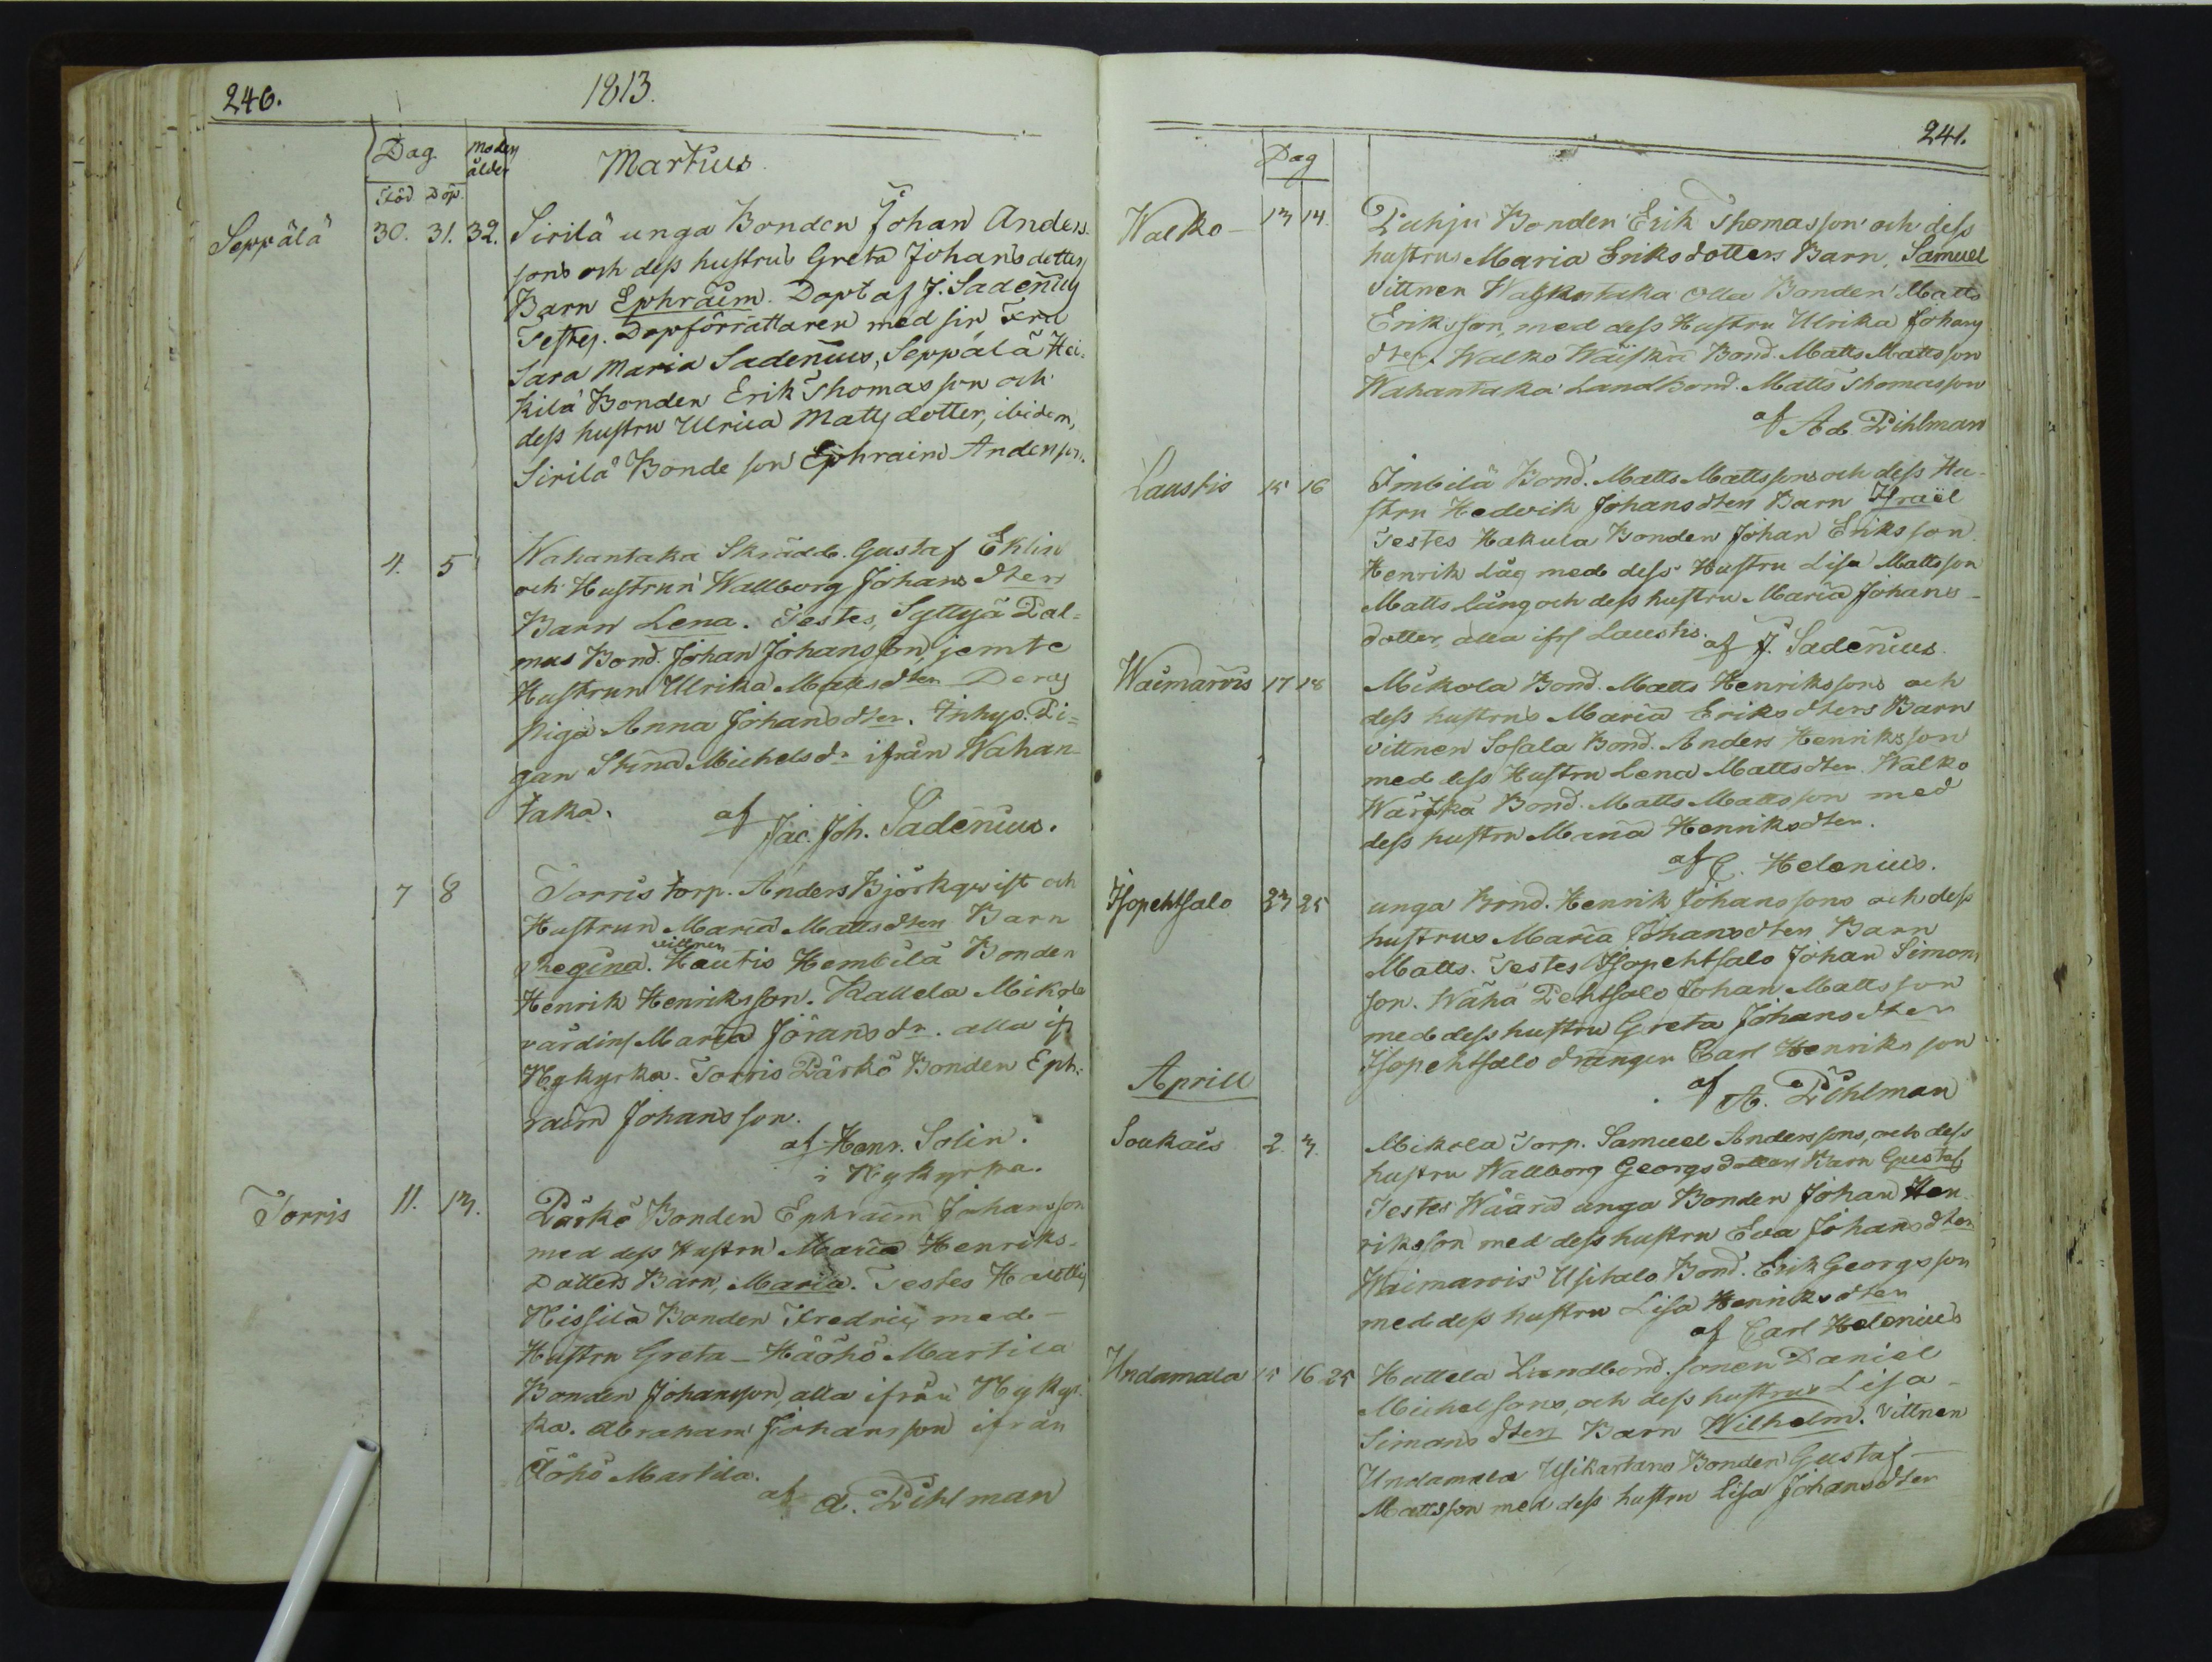 240.
1813.
Dag.
Moders
ålder
Martius
Föd. Döp.
Seppälä 30. 31. 32. Sirilä unga Bonden Johan Anders-
sons och dess hustrus Greta Johansdotters
Barn Ephraim. Döpt af J. Sadenius
Testes. Dopförrättaren med sin Fru
Sara Maria Sadenius, Seppälä Hei-
kilä Bonden Erik Thomasson och
dess hustru Ulrica Mattsdotter, ibidem,
Sirilä Bonde son Ephraim Andersson.
4. 5 Wahantaka Skrädd. Gustaf Eklin
och Hustrun Wallborg Johans dters
Barn Lena. Testes, Syttyä Pal=
mus Bond. Johan Johansson, jemte
Hustrun Ulrika Matts dter Deras
piga Anna Johans dter. Inhys. Pi=
gan Stina Michels dr ifrån Wahan-
taka. af Jac. Joh. Sadenius.
7 8 Torris torp. Anders Björkqvist och
Hustrun Maria Matts dters Barn
Regina. vittnen Hautis Hembilä Bonden
Henrik Henriksson. Kallela Mikola
värdins Maria Jörans dr. alla ifr
Nykyrka. Torris Pärkö Bonden Eph-
raim Johansson.
af Henr. Solin.
i Nykyrka.
Torris 11. 13. Pärkö Bonden Ephraim Johansson
med dess Hustru Maria Henriks-
Dotters Barn, Maria. Testes Hauttis
Nissilä Bonden Fredric med
Hustru Greta - Häöhö Martila
Bonden Johansson, alla ifrån Nykyr-
ka. Abraham Johansson ifrån
Äöhö Martila.
af A. Pihlman
241.
Dag
Walko - 13 14. Puhju Bonden Erik Thomasson och dess
hustrus Maria Eriks dotters Barn, Samuel
vittnen Olla Bonden Matts
Eriksson, med dess Hustru Ulrika Johans
dter. Walko Wäiskä Bond. Matts Mattsson
Wahantaka Landbond. Matts Thomasson
af Ad. Pihlman
Laustis 15 16 Imbilä Bond. Matts Mattssons och dess Hu-
stru Hedvik Johans dters Barn Israël
Testes Hakula Bonden Johan Eriksson.
Henrik Låg med dess Hustru Lisa Mattsson
Matts Lång och dess hustru Maria Johans-
dotter, alla ifrf Laustis. af J. Sadenius.
Waimarois 17 18 Mikola Bond. Matts Henrikssons och
dess hustrus Maria Eriks dters Barn
vittnen Sosala Bond. Anders Henriksson
med dess Hustru Lena Matts dter. Walko
Wäiskä Bond. Matts Mattsson med
dess hustru Maria Henriks dter.
af C. Helenius.
Isopehtsalo 23 25 unga Bond. Henrik Johanssons och dess
hustrus Maria Johans dters Barn
Matts. Testes Isopehtsalo Johan Simons
son. Wähä Pehtsalo Johan Mattsson
med dess hustru Greta Johans dter
Isopehtsalo drängen Carl Henriksson
af A. Pihlman
Aprill
Soukais 2. 3. Mikola Torp. Samuel Anderssons, och dess
hustru Wallborg Georgs dotters Barn Gustaf,
Testes Wäärä unga Bonden Johan Hen-
riksson med dess hustru Eva Johans dter
Waimarois Usitalo Bond. Erik Georgsson
med dess hustru Lisa Henriks dter
af Carl Helenius
Undamala 15 16 25 Huttela Landbond. sonen Daniel
Michelsons, och dess hustrus Lisa
Simans dters Barn Wilhelm. Vittnen
Undamala Usikartano Bonden Gustaf
Mattsson med dess hustru Lisa Johans dter